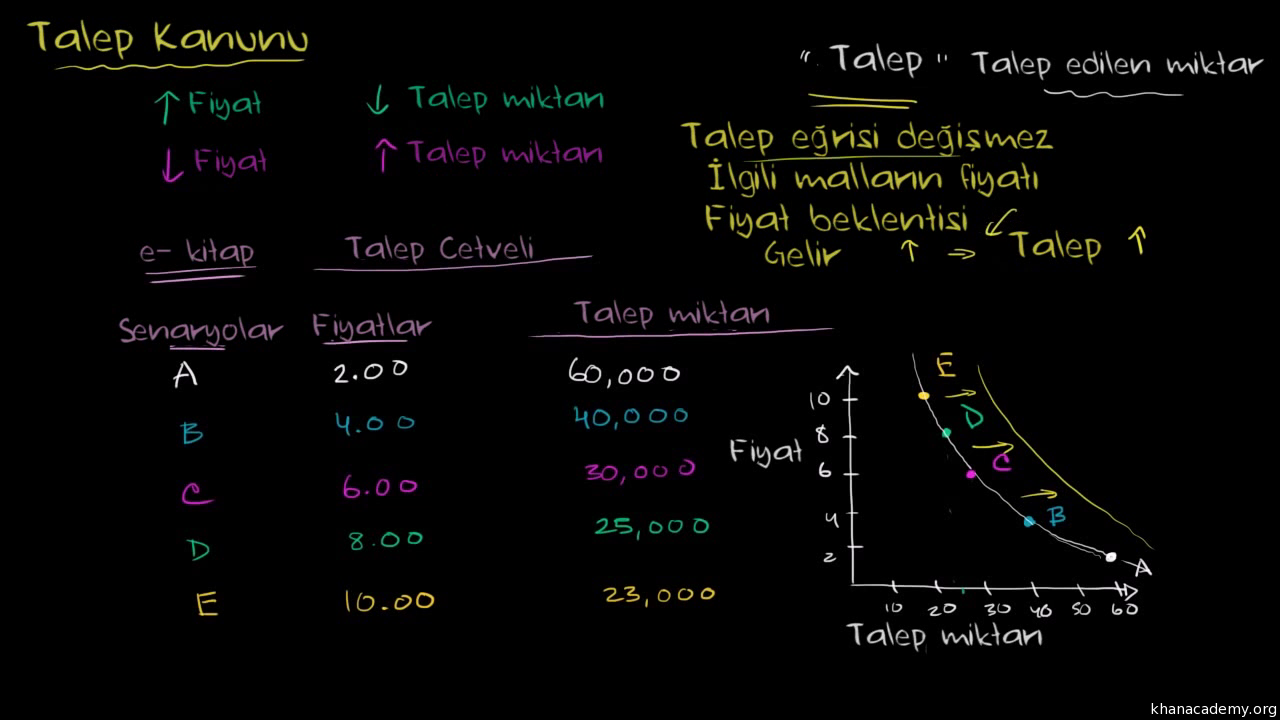 Talep Kanunu
↑ Fiyat ↓ Talep miktarı
↓ Fiyat ↑ Talep miktarı
"Talep" Talep edilen miktar
Talep eğrisi değişmez
İlgili malların fiyatı
Fiyat beklentisi ↙
Gelir ↑ ⇒ Talep ↑
e-kitap Talep Cetveli
Senaryolar Fiyatlar Talep miktarı
A 2.00 60,000
B 4.00 40,000
C 6.00 30,000
D 8.00 25,000
E 10.00 23,000
E
D
C
B
A
Fiyat
10
8
6
4
2
10 20 30 40 50 60
Talep miktarı
khanacademy.org